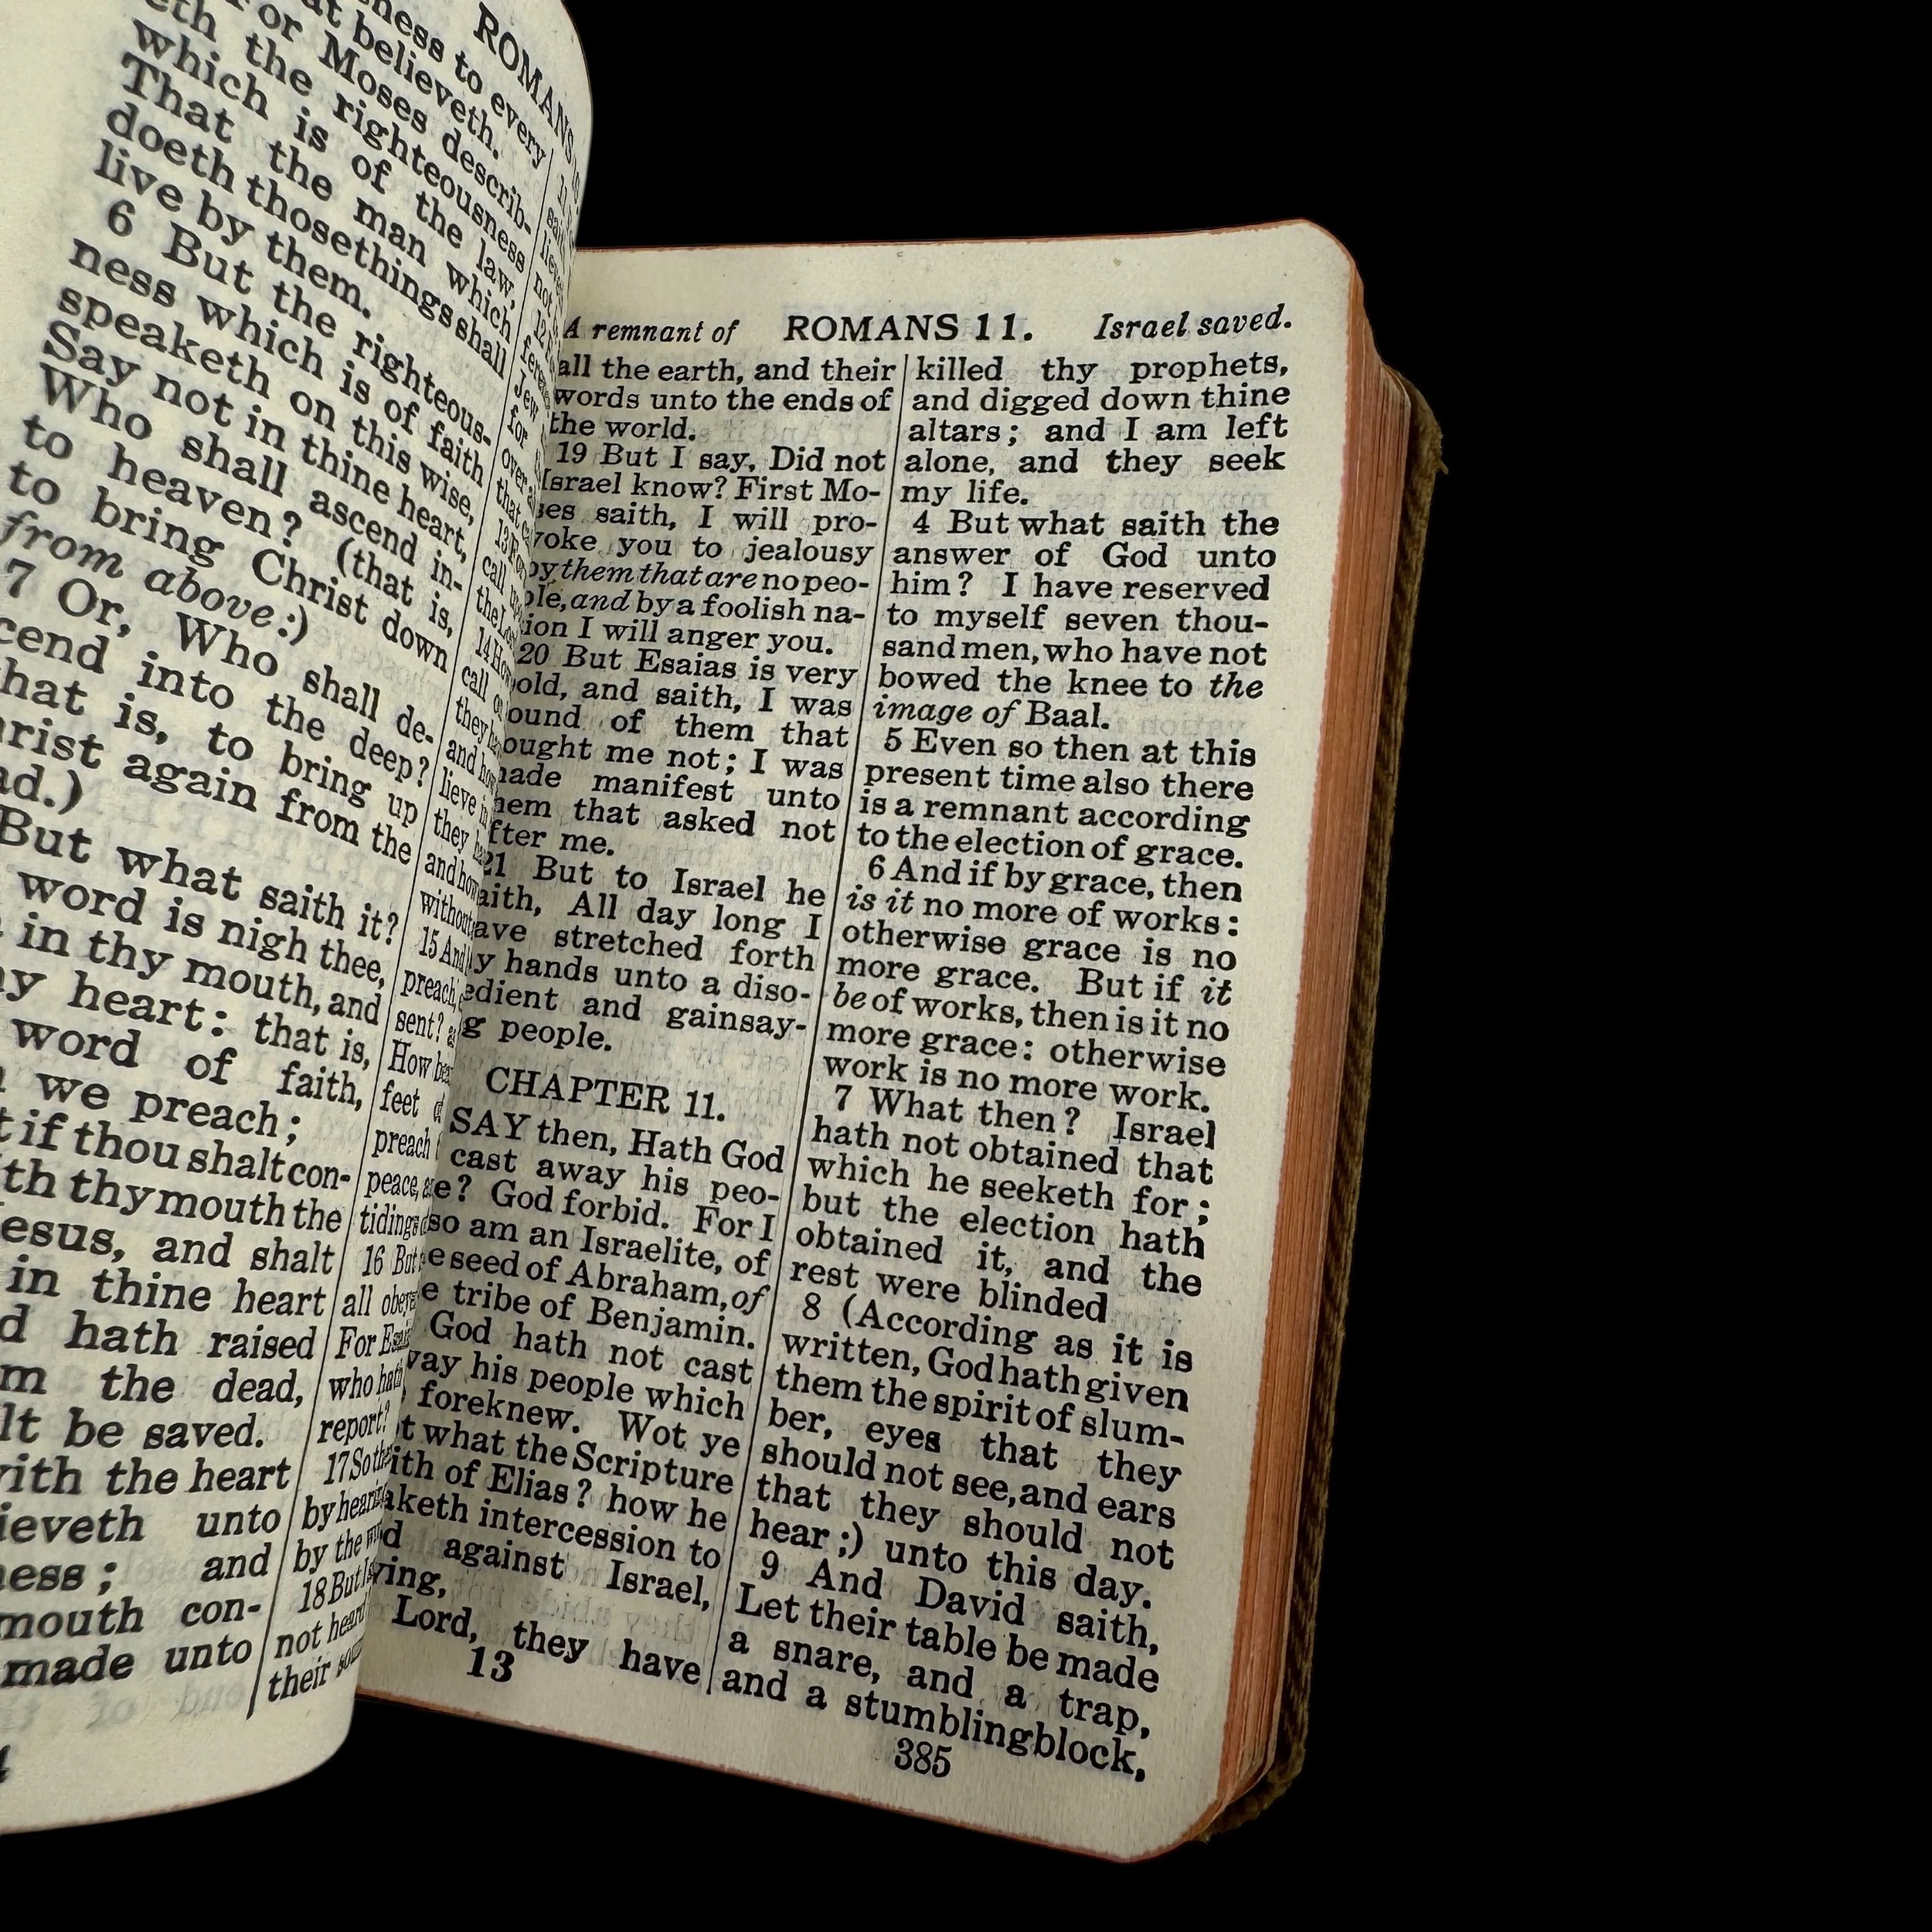 ROMANS
ness to every
at believeth.
or Moses describ-
eth the righteousness
which is of the law,
That the man which
doeth those things shall
live by them.
6 But the righteous-
ness which is of faith
speaketh on this wise,
Say not in thine heart,
Who shall ascend in-
to heaven? (that is,
to bring Christ down
from above:)
7 Or, Who shall de-
cend into the deep?
hat is, to bring up
rist again from the
ad.)
But what saith it?
word is nigh thee,
in thy mouth, and
y heart: that is,
word of faith,
we preach;
t if thou shalt con-
th thy mouth the
esus, and shalt
in thine heart
d hath raised
m the dead,
lt be saved.
ith the heart
ieveth unto
ness; and
mouth con-
made unto
not
for
over
that
call
14 How
call
they
and how
lieve
they
and how
without
15 And
preach,
sent?
How
feet
preach
peace,
tidings
16 But
all
For
who hath
report?
17 So
by
by the
18 But
not heard
their
A remnant of ROMANS 11. Israel saved.
all the earth, and their
words unto the ends of
the world.
19 But I say, Did not
Israel know? First Mo-
ses saith, I will pro-
voke you to jealousy
by them that are no peo-
ple, and by a foolish na-
ion I will anger you.
20 But Esaias is very
bold, and saith, I was
ound of them that
ought me not; I was
made manifest unto
hem that asked not
fter me.
21 But to Israel he
aith, All day long I
ave stretched forth
y hands unto a diso-
edient and gainsay-
g people.
CHAPTER 11.
SAY then, Hath God
cast away his peo-
e? God forbid. For I
so am an Israelite, of
e seed of Abraham, of
e tribe of Benjamin.
God hath not cast
way his people which
foreknew. Wot ye
t what the Scripture
ith of Elias? how he
aketh intercession to
d against Israel,
ying,
Lord, they have
13
killed thy prophets,
and digged down thine
altars; and I am left
alone, and they seek
my life.
4 But what saith the
answer of God unto
him? I have reserved
to myself seven thou-
sand men, who have not
bowed the knee to the
image of Baal.
5 Even so then at this
present time also there
is a remnant according
to the election of grace.
6 And if by grace, then
is it no more of works:
otherwise grace is no
more grace. But if it
be of works, then is it no
more grace: otherwise
work is no more work.
7 What then? Israel
hath not obtained that
which he seeketh for;
but the election hath
obtained it, and the
rest were blinded
8 (According as it is
written, God hath given
them the spirit of slum-
ber, eyes that they
should not see, and ears
that they should not
hear;) unto this day.
9 And David saith,
Let their table be made
a snare, and a trap,
and a stumblingblock,
385